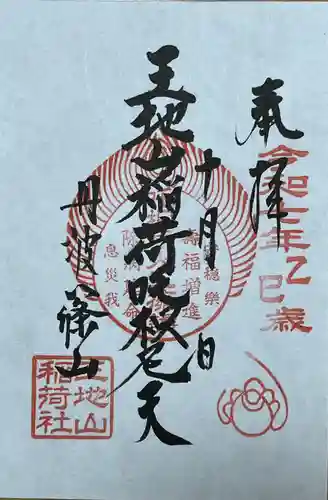 奉拝
令和七年乙巳歳
十月　日
王地山稲荷吒枳尼天
丹波篠山
壽福増進
息災我
王地山
稲荷社